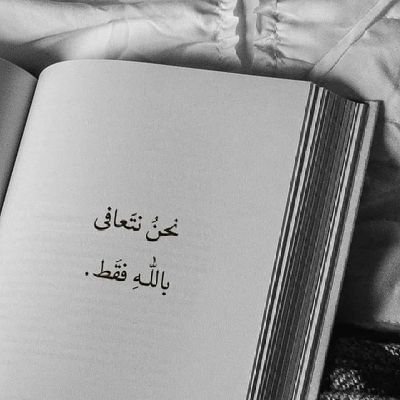 نحنُ نتَعافى
باللّٰهِ فقَط.